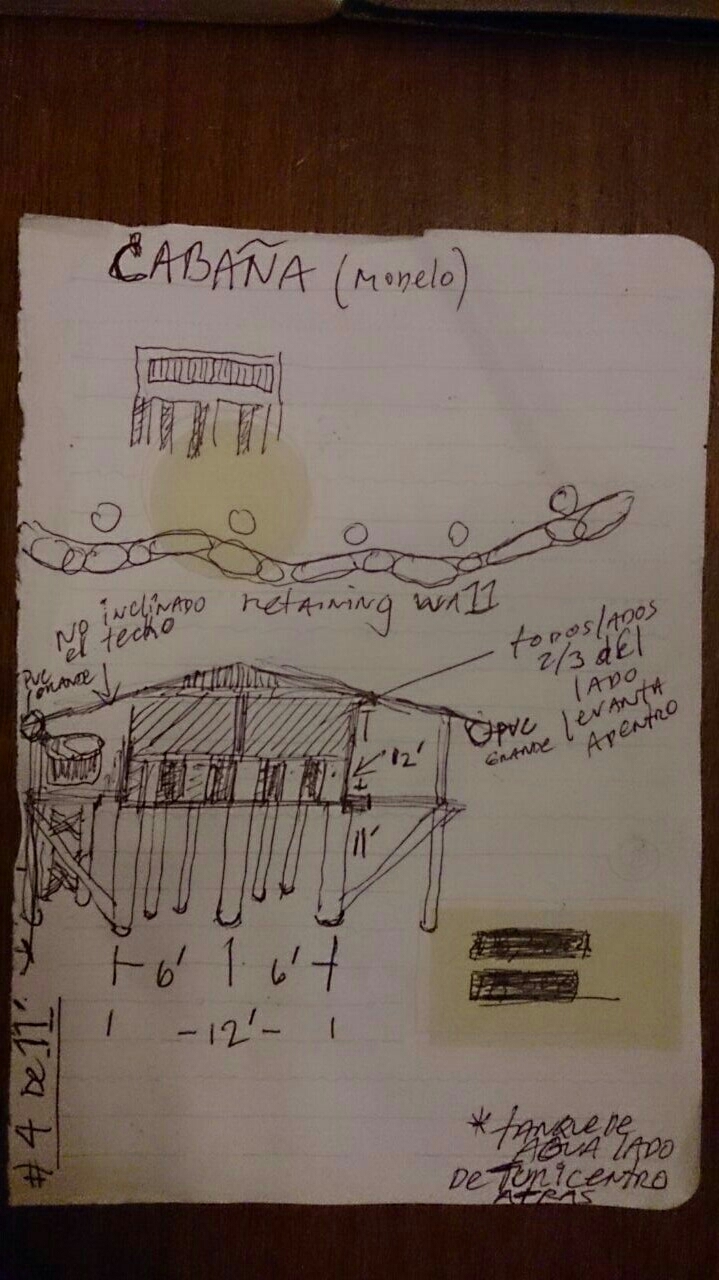 CABAÑA (Modelo)
retaining wall
NO inclinado
el techo
PVC
GRANDE
todos lados
2/3 del
lado
levanta
adentro
PVC
GRANDE
12'
11'
6' 6'
12'
# 4 De 11'
* tanque de
AGUA lado
De Turicentro
ATRAS